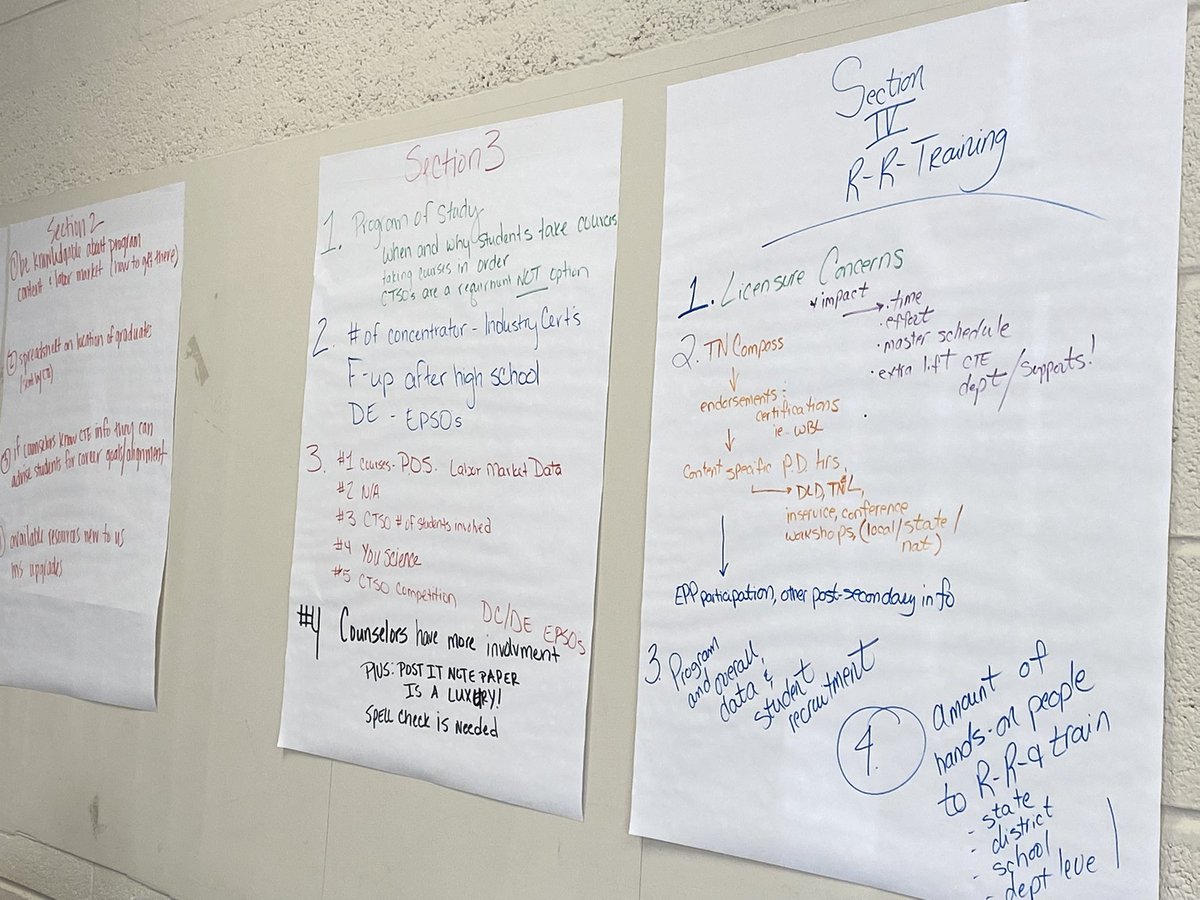 Section 2
① be knowledgable about program
content & labor market (how to get there)
② spreadsheet on location of graduates
③ if counselors know CTE info they can
advise students for career goals/alignment
available resources new to us
ms upgrades
Section 3
1. Program of Study
when and why students take courses
taking courses in order
CTSO's are a requirment NOT option
2. # of concentrator - Industry Cert's
F-up after high school
DE - EPSOs
3. #1 Courses - P.O.S. Labor Market Data
#2 N/A
#3 CTSO # of students involved
#4 You Science
#5 CTSO Competition
DC/DE EPSOs
#4 Counselors have more involvment
PlUS: POST IT NOTE PAPER
IS A LUXURY!
SPELL CHECK IS NEEDED
Section
IV
R-R-Training
1. Licensure Concerns
impact → • time
• effort
• master schedule
• extra lift CTE
dept/supports!
2. TN Compass
endorsements:
certifications
ie - WBL
Content specific P.D. hrs,
→ DLD, TNL,
inservice, conference
workshops, (local/state/
nat)
EPP participation, other post-secondary info
3. Program
and overall
data &
student
recruitment
4. amount of
hands-on people
to R-R-& train
- state
- district
- school
- dept leve